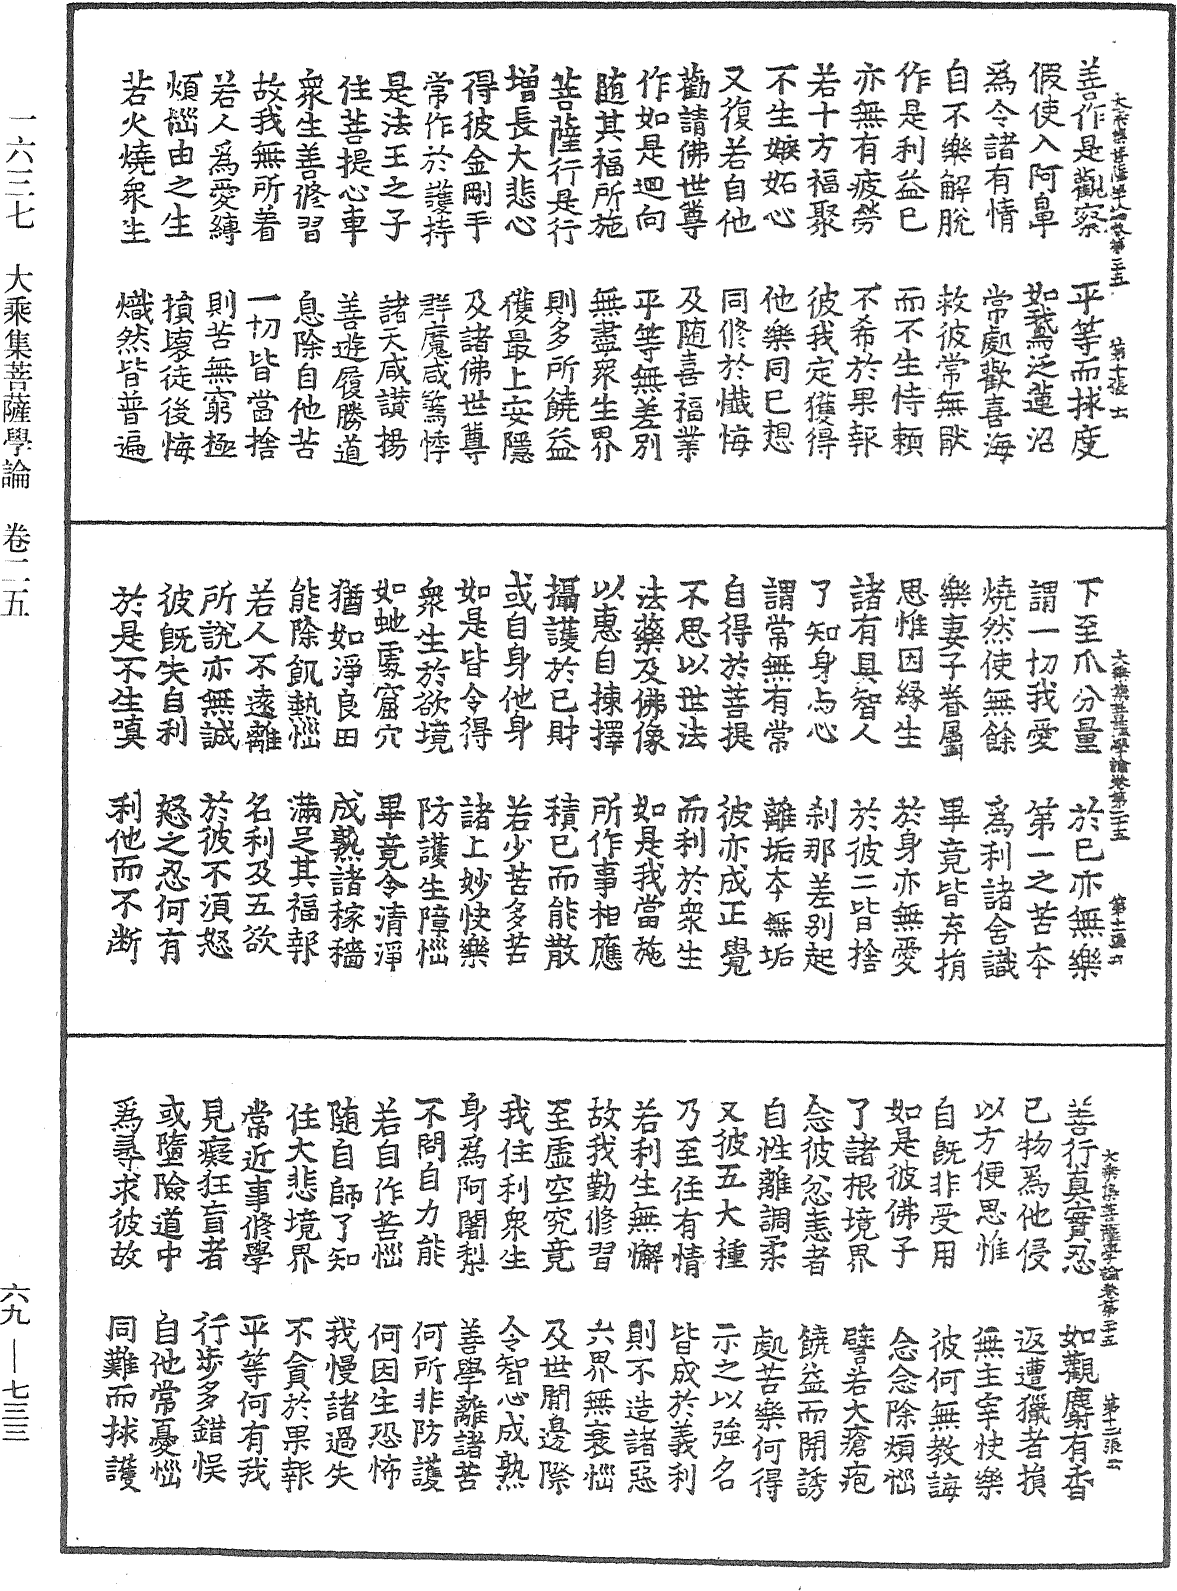 大乘集菩薩學論卷第二十五　第十張　士
善作是觀察　平等而捄度
假使入阿鼻　如鵞泛蓮沼
爲令諸有情　常處歡喜海
自不樂解脫　救彼常無猒
作是利益已　而不生恃賴
亦無有疲勞　不希於果報
若十方福聚　彼我定獲得
不生嫉妬心　他樂同已想
又復若自他　同修於懺悔
勸請佛世尊　及随喜福業
作如是迴向　平等無差別
随其福所施　無盡衆生界
菩薩行是行　則多所饒益
增長大悲心　獲最上安隱
得彼金剛手　及諸佛世尊
常作於護持　群魔咸驚悸
是法王之子　諸天咸讚揚
住菩提心車　善遊履勝道
衆生善修習　息除自他苦
故我無所着　一切皆當捨
若人爲愛縛　則苦無窮極
煩惱由之生　損壞徒後悔
若火燒衆生　熾然皆普遍
大乘集菩薩學論卷第二十五　第十一張　士
下至爪分量　於已亦無樂
謂一切我愛　第一之苦本
燒然使無餘　爲利諸含識
樂妻子眷屬　畢竟皆弃捐
思惟因緣生　於身亦無愛
諸有具智人　於彼二皆捨
了知身与心　刹那差别起
謂常無有常　離垢本無垢
自得於菩提　彼亦成正覺
不思以世法　而利於衆生
法藥及佛像　如是我當施
以惠自揀擇　所作事相應
攝護於已財　積已而能散
或自身他身　若少苦多苦
如是皆令得　諸上妙快樂
衆生於欲境　防護生障惱
如虵處窟穴　畢竟令清淨
猶如淨良田　成熟諸稼穡
能除飢熱惱　滿足其福報
若人不遠離　名利及五欲
所說亦無誠　於彼不須怒
彼旣失自利　怒之忍何有
於是不生嗔　利他而不断
大乘集菩薩學論卷第二十五　第十二張　士
善行真實忍　如觀麝有香
已物爲他侵　返遭獵者損
以方便思惟　無主宰快樂
自旣非受用　彼何無教誨
如是彼佛子　念念除煩惱
了諸根境界　譬若大瘡疱
念彼忿恚者　饒益而開誘
自性離調柔　處苦樂何得
又彼五大種　示之以強名
乃至任有情　皆成於義利
若利生無懈　則不造諸惡
故我勤修習　六界無衰惱
至虛空究竟　及世間邊際
我住利衆生　令智心成熟
身爲阿闍梨　善學離諸苦
不問自力能　何所非防護
若自作苦惱　何因生恐怖
随自師了知　我慢諸過失
住大悲境界　不貪於果報
常近事修學　平等何有我
見癡狂盲者　行步多錯悞
或墮險道中　自他常憂惱
爲尋求彼故　同難而捄護
一六三七　大乘集菩薩學論　卷二五
六九—七三三